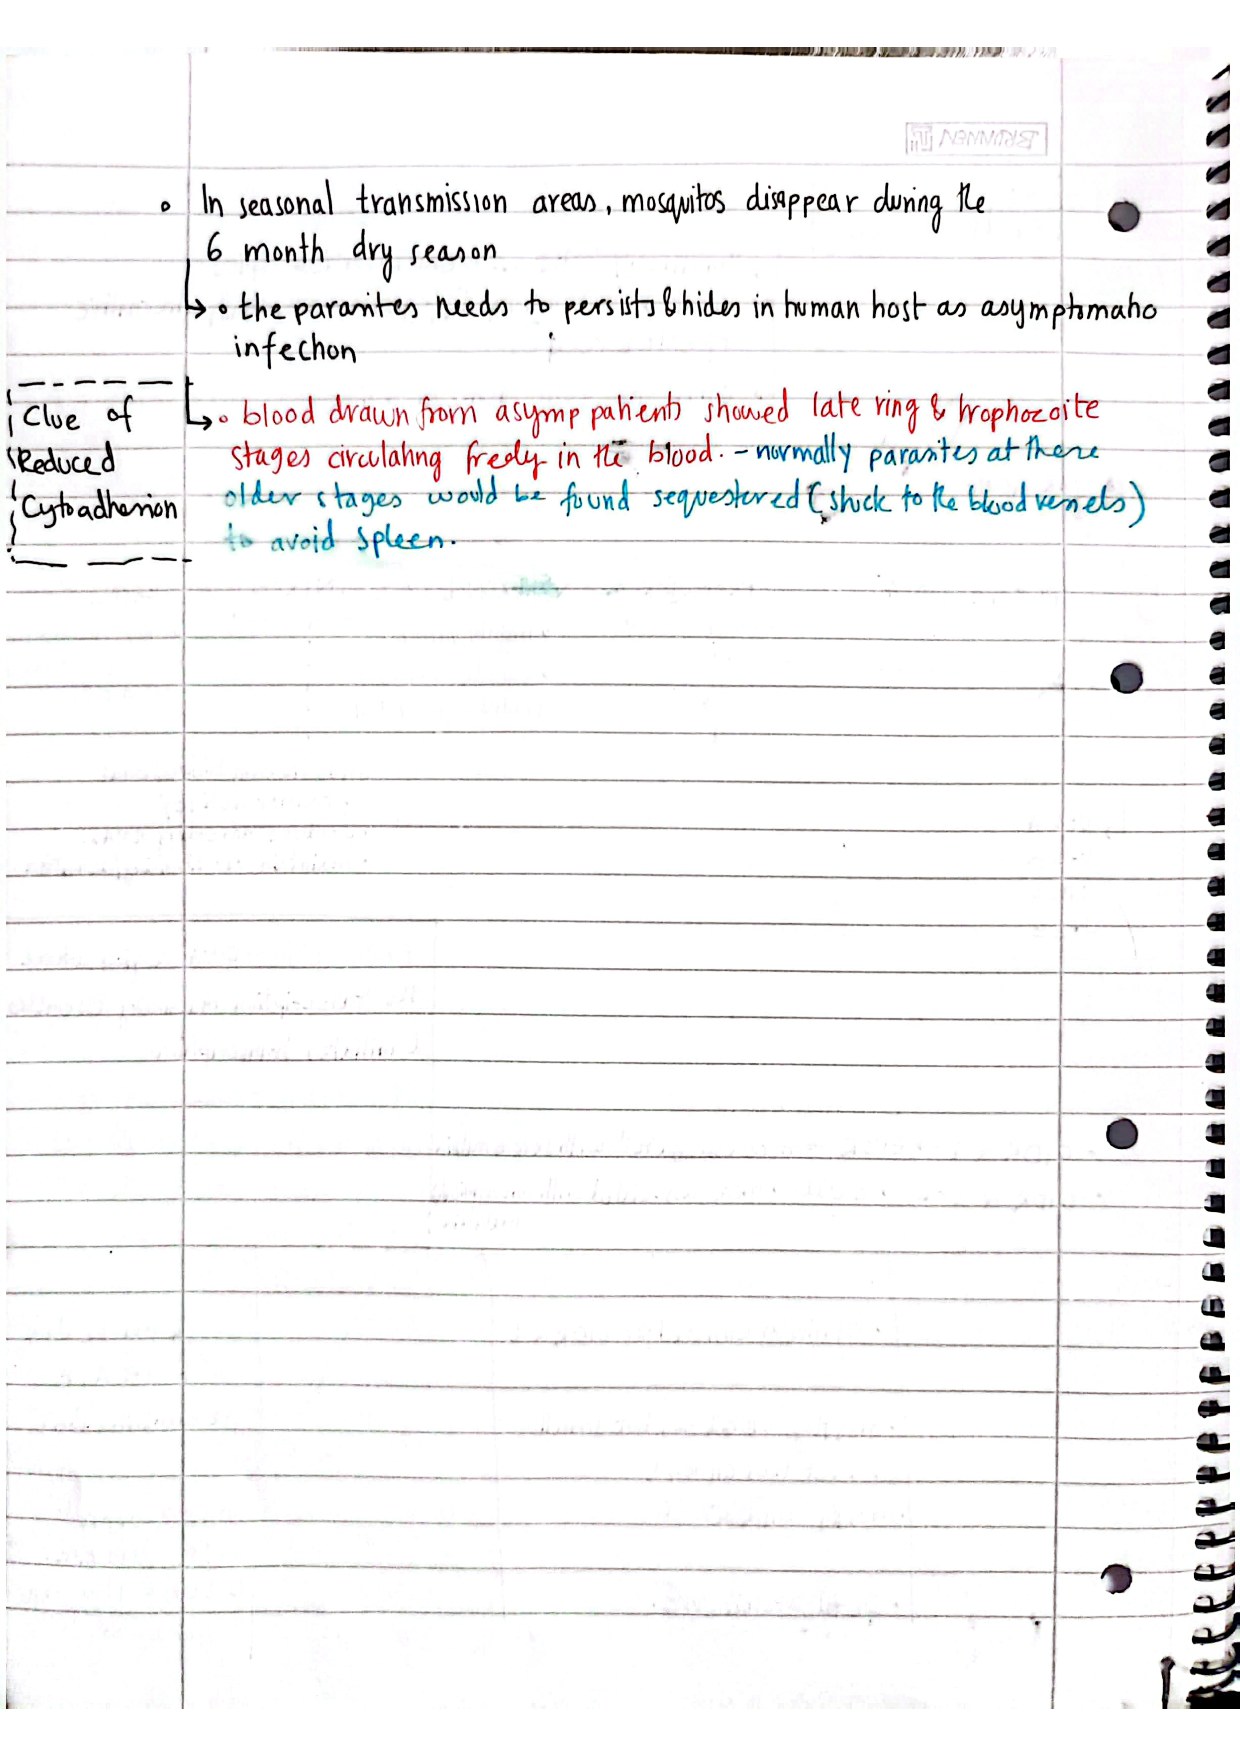 • In seasonal transmission areas, mosquitos disappear during the
6 month dry season
↳ • the parasites needs to persists & hides in human host as asymptomatic
infection
Clue of
Reduced
Cytoadhesion
↳ • blood drawn from asymp patients showed late ring & trophozoite
stages circulating freely in the blood. - normally parasites at there
older stages would be found sequestered (stuck to the blood vessels)
to avoid spleen.